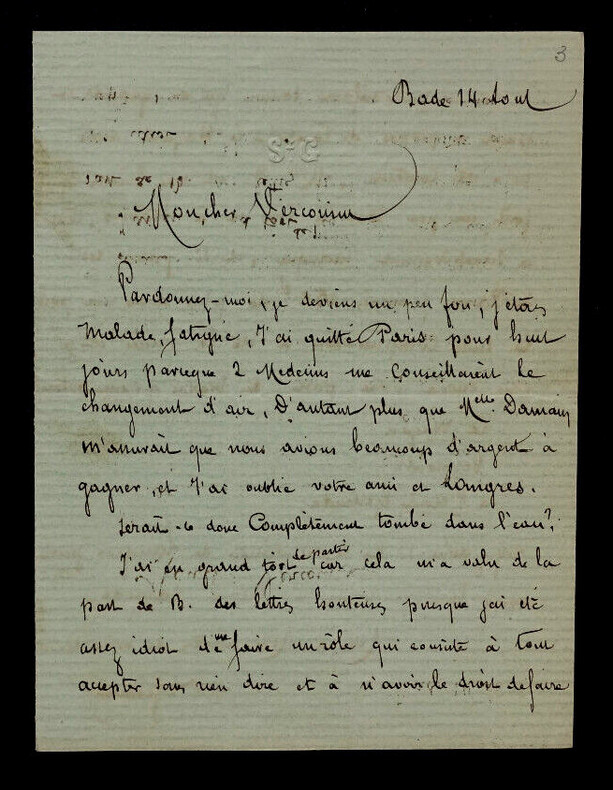 3
Bade 14 Aout
Mon cher Vercoussin
Pardonnez-moi, je deviens un peu fou, j'étais
malade, fatiguée, J'ai quitté Paris pour huit
jours parceque 2 Medecins me Conseillaient le
changement d'air, D'autant plus que Melle Damain
m'assurait que nous avions beaucoup d'argent à
gagner, et J'ai oublié votre ami et Langres.
Serait-ce donc Complètement tombé dans l'eau?
J'ai eu grand tort de partir car cela m'a valu de la
part de B. des lettres honteuses presque j'ai été
assez idiot de me faire un rôle qui consiste à tout
accepter sans rien dire et à n'avoir le droit de faire